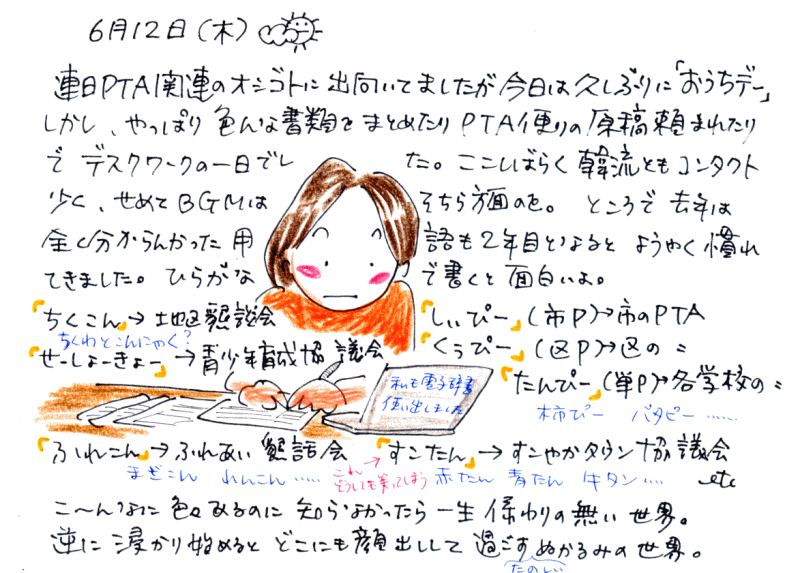 6月12日（木）
連日PTA関連のオシゴトに出向いてましたが今日は久しぶりに「おうちデー」
しかし、やっぱり色んな書類をまとめたりPTA便りの原稿頼まれたり
でデスクワークの一日でした。ここしばらく韓流ともコンタクト
少く、せめてBGMはそちら方面のを。ところで去年は
全く分からんかった用語も2年目となるとようやく慣れ
てきました。ひらがなで書くと面白いよ。
「ちくこん」→地区懇談会
ちくわとこんにゃく？
「せーしょーきょー」→青少年育成協議会
「しぃぴー」（市P）→市のPTA
「くぅぴー」（区P）→区の〃
「たんぴー」（単P）→各学校の〃
柿ぴー バタピー……
私も電子辞書
使い出しました
「ふれこん」→ふれあい懇話会
まざこん れんこん……
「すこたん」→すこやかタウン協議会
これ→
どうしても笑ってしまう
赤たん 青たん 牛タン…
etc
こ〜んなに色々あるのに知らなかったら一生係わりの無い世界。
逆に浸かり始めるとどこにも顔出しして過ごすぬかるみの世界。
たのしい